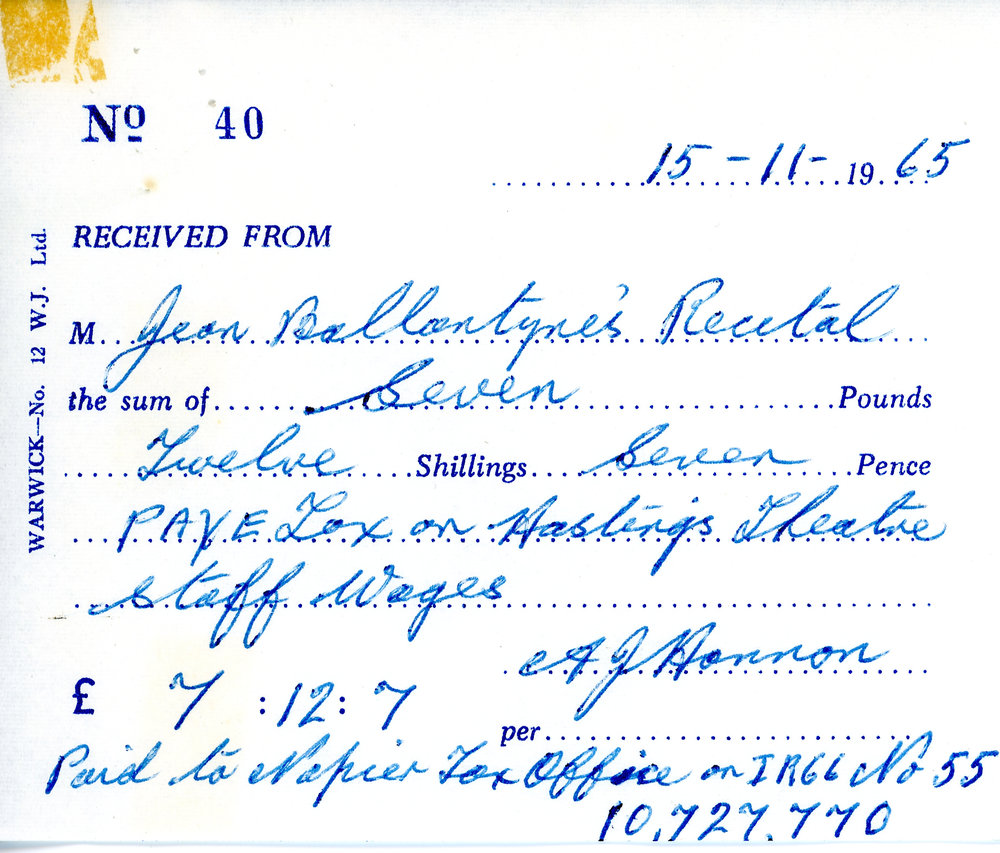 Nº 40
15-11-1965
RECEIVED FROM
M. Jean Ballantyne's Recital
the sum of Seven Pounds
Twelve Shillings Seven Pence
PAYE Tax on Hastings Theatre
Staff Wages
A J Hannon
£ 7 : 12 : 7
per
Paid to Napier Tax Office on IR66 No 55
10,727,770
WARWICK—No. 12 W.J. Ltd.